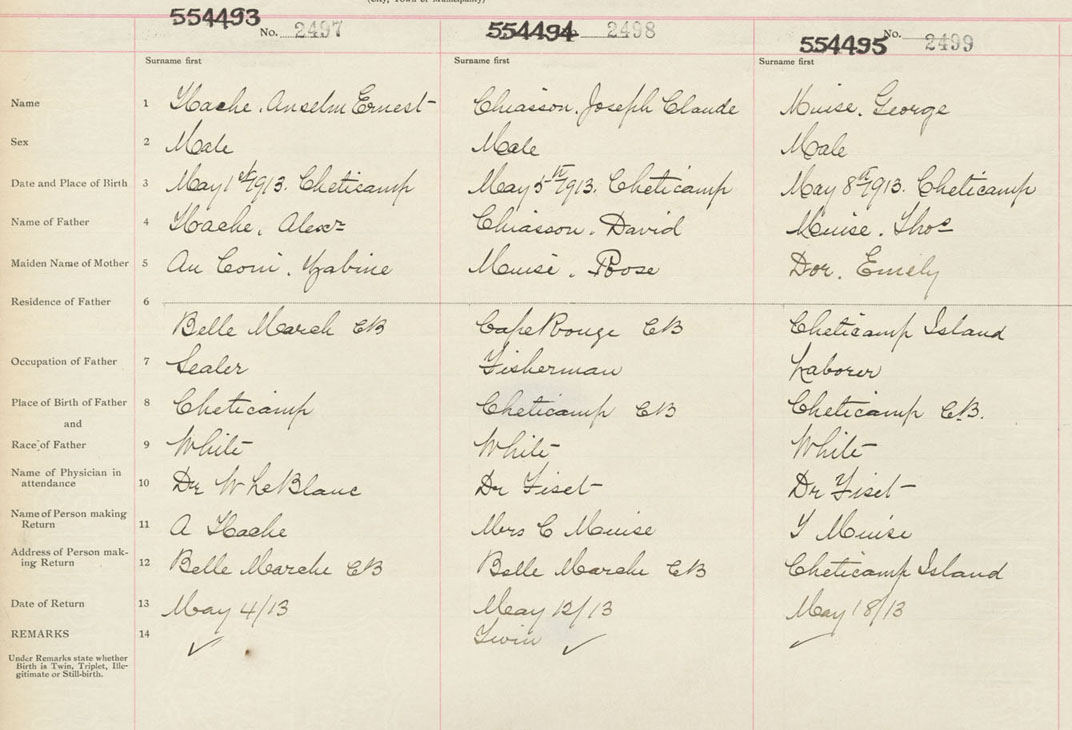 (City, Town or Municipality)
554493 No. 2497 554494 2498 554495 No. 2499
Surname first Surname first Surname first
Name 1 Hache, Anselm Ernest Chiasson, Joseph Claude Muise, George
Sex 2 Male Male Male
Date and Place of Birth 3 May 1st 1913. Cheticamp May 5th 1913. Cheticamp May 8th 1913. Cheticamp
Name of Father 4 Hache, Alexr Chiasson, David Muise, Thos
Maiden Name of Mother 5 Au Coin, Muise, Dor, Emely
Residence of Father 6
Belle March CB Cape Rouge CB Cheticamp Island
Occupation of Father 7 Sealer Fisherman Laborer
Place of Birth of Father 8 Cheticamp Cheticamp CB Cheticamp C.B.
and
Race of Father 9 White White White
Name of Physician in
attendance 10 Dr W LeBlanc Dr Fiset Dr Fiset
Name of Person making
Return 11 A Hache Mrs C Muise T Muise
Address of Person mak-
ing Return 12 Belle Marche CB Belle Marche CB Cheticamp Island
Date of Return 13 May 4/13 May 12/13 May 18/13
REMARKS 14 ✓ Twin ✓ ✓
Under Remarks state whether
Birth is Twin, Triplet, Ille-
gitimate or Still-birth.